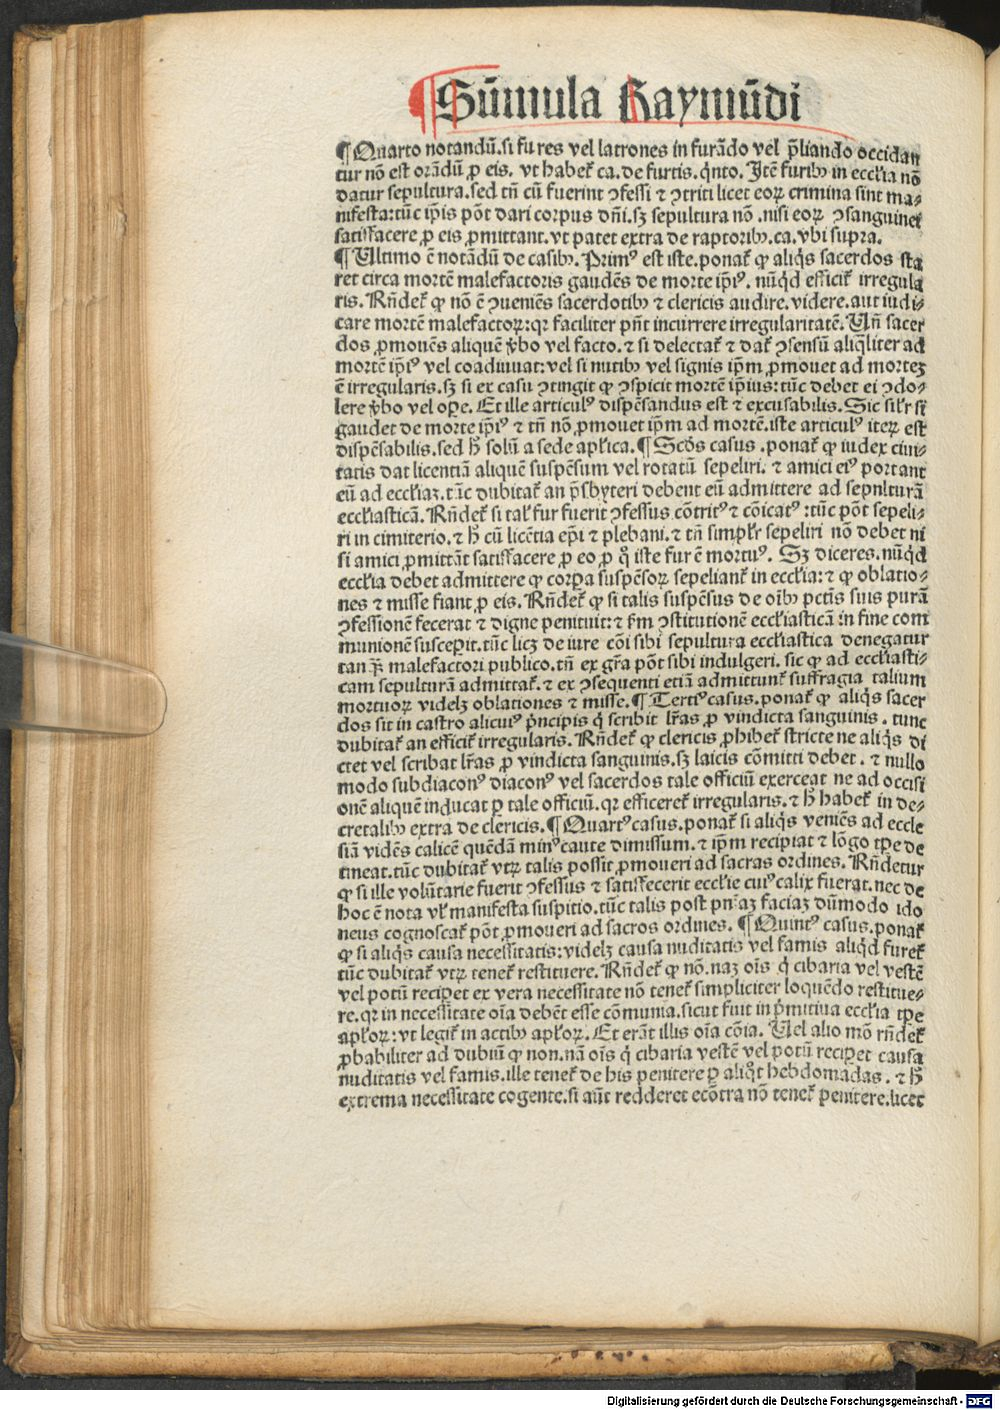 ¶ Sūmula Raymūdi
¶ Quarto notandū.si fu res vel latrones in furādo vel p̄liando occidan
tur nō est orādū ꝓ eis. vt habet᷑ ca.de furtis.q̇nto. Itē furibꝰ in eccłia nō
datur sepultura.sed tn̄ cū fuerint ꝯfessi ⁊ ꝯtriti licet eoꝝ crimina sint ma⸗
nifesta:tūc ip̄is pōt dari corpus dn̄i.sꝫ sepultura nō .nisi eoꝝ ꝯsanguinei
satisfacere ꝓ eis ꝓmittant.vt patet extra de raptoribꝰ.ca.vbi supra.
¶ Ultimo ē notandū de casibꝰ. Primꝰ est iste.ponat᷑ ꝙ aliq̇s sacerdos sta
ret circa mortē malefactoris gaudēs de morte ip̄iꝰ. nūq̇d efficit᷑ irregula
ris. Rn̄det᷑ ꝙ nō ē ꝯueniēs sacerdotibꝰ ⁊ clericis audire.videre.aut iudi⸗
care mortē malefactoꝝ:qꝛ faciliter pn̄t incurrere irregularitatē. Un̄ sacer
dos ꝓmouēs aliquē v̇bo vel facto.⁊ si delectat᷑ ⁊ dat᷑ ꝯsensū aliq̄liter ad
mortē ip̄iꝰ vel coadiuuat:vel si nutibꝰ vel signis ip̄m ꝓmouet ad morteꝫ
ē irregularis.sꝫ si ex casu ꝯtingit ꝙ ꝯspicit mortē ip̄ius:tūc debet ei ꝯdo⸗
lere v̇bo vel oꝑe. Et ille articulꝰ dispēsandus est ⁊ excusabilis. Sic sil̕r si
gaudet de morte ip̄iꝰ ⁊ tn̄ nō ꝓmouet ip̄m ad mortē.iste articulꝰ iteꝝ est
dispēsabilis.sed h̄ solū a sede apl̕ica. ¶ Scd̕s casus .ponat᷑ ꝙ iudex ciui⸗
tatis dat licentiā aliquē suspēsum vel rotatū sepeliri. ⁊ amici eiꝰ portant
eū ad eccłiaꝫ.tūc dubitat᷑ an p̄sbyteri debent eū admittere ad sepulturā
eccłiasticā. Rn̄det᷑ si tal̕ fur fuerit ꝯfessus cōtritꝰ ⁊ cōicatꝰ :tūc pōt sepeli⸗
ri in cimiterio.⁊ h̄ cū licētia ep̄i ⁊ plebani.⁊ tn̄ simpl̕r sepeliri nō debet ni
si amici ꝓmittāt satisfacere ꝓ eo ꝓ q̊ iste fur ē mortuꝰ. Sꝫ diceres.nūq̇d
eccłia debet admittere ꝙ corꝑa suspēsoꝝ sepeliant᷑ in eccłia:⁊ ꝙ oblatio⸗
nes ⁊ misse fiant ꝓ eis. Rn̄det᷑ ꝙ si talis suspēsus de oībꝰ pctīs suis purā
ꝯfessionē fecerat ⁊ digne penituit:⁊ km̄ ꝯstitutionē eccłiasticā in fine com
munionē susceꝑit.tūc licꝫ de iure cōi sibi sepultura eccłiastica denegatur
tan q̄ꝫ malefactori publico.tn̄ ex gr̄a pōt sibi indulgeri. sic ꝙ ad eccłiasti⸗
cam sepulturā admittat᷑.⁊ ex ꝯsequenti etiā admittunt᷑ suffragia talium
mortuoꝝ videlꝫ oblationes ⁊ misse. ¶ Tertiꝰ casus.ponat᷑ ꝙ aliq̇s sacer
dos sit in castro alicuiꝰ ṗncipis q̇ scribit lr̄as ꝓ vindicta sanguinis . tunc
dubitat᷑ an efficit᷑ irregularis. Rn̄det᷑ ꝙ clericis ꝓhibet᷑ stricte ne aliq̇s di
ctet vel scribat lr̄as ꝓ vindicta sanguinis.sꝫ laicis cōmitti debet . ⁊ nullo
modo subdiaconꝰ diaconꝰ vel sacerdos tale officiū exerceat ne ad occisi
onē aliquē inducat ꝑ tale officiū.qꝛ efficeret᷑ irregularis.⁊ h̄ habet᷑ in de⸗
cretalibꝰ extra de clericis. ¶ Quartꝰ casus.ponat᷑ si aliq̇s veniēs ad eccle
siā vidēs calicē quēdā minꝰ caute dimissum.⁊ ip̄m recipiat ⁊ lōgo tꝑe de
tineat.tūc dubitat᷑ vtꝝ talis possit ꝓmoueri ad sacras ordines. Rn̄detur
ꝙ si ille volūtarie fuerit ꝯfessus ⁊ satisfecerit eccłie cuiꝰ calix fuerat.nec de
hoc ē nota vl̕ manifesta suspitio.tūc talis post pn̄iaꝫ faciaꝫ dūmodo ido
neus cognoscat᷑ pōt ꝓmoueri ad sacros ordines. ¶ Quintꝰ casus.ponat᷑
ꝙ si aliq̇s causa necessitatis:videlꝫ causa nuditatis vel famis aliq̇d furet᷑
tūc dubitat᷑ vtꝝ tenet᷑ restituere. Rn̄det᷑ ꝙ nō.naꝫ oīs q̇ cibaria vel vestē
vel potū reciꝑet ex vera necessitate nō tenet᷑ simpliciter loquēdo restitue⸗
re.qꝛ in necessitate oīa debēt esse cōmunia.sicut fuit in ṗmitiua eccłia tꝑe
apl̕oꝝ:vt legit᷑ in actibꝰ apl̕oꝝ. Et erāt illis oīa cōia. Uel alio mō rn̄det᷑
ꝓbabiliter ad dubiū ꝙ non.nā oīs q̇ cibaria vestē vel potū reciꝑet causa
nuditatis vel famis.ille tenet᷑ de his penitere ꝑ aliq̊t hebdomadas . ⁊ h̄
extrema necessitate cogente.si aūt redderet ecōtra nō tenet᷑ penitere.licet
Digitalisierung gefördert durch die Deutsche Forschungsgemeinschaft - DFG